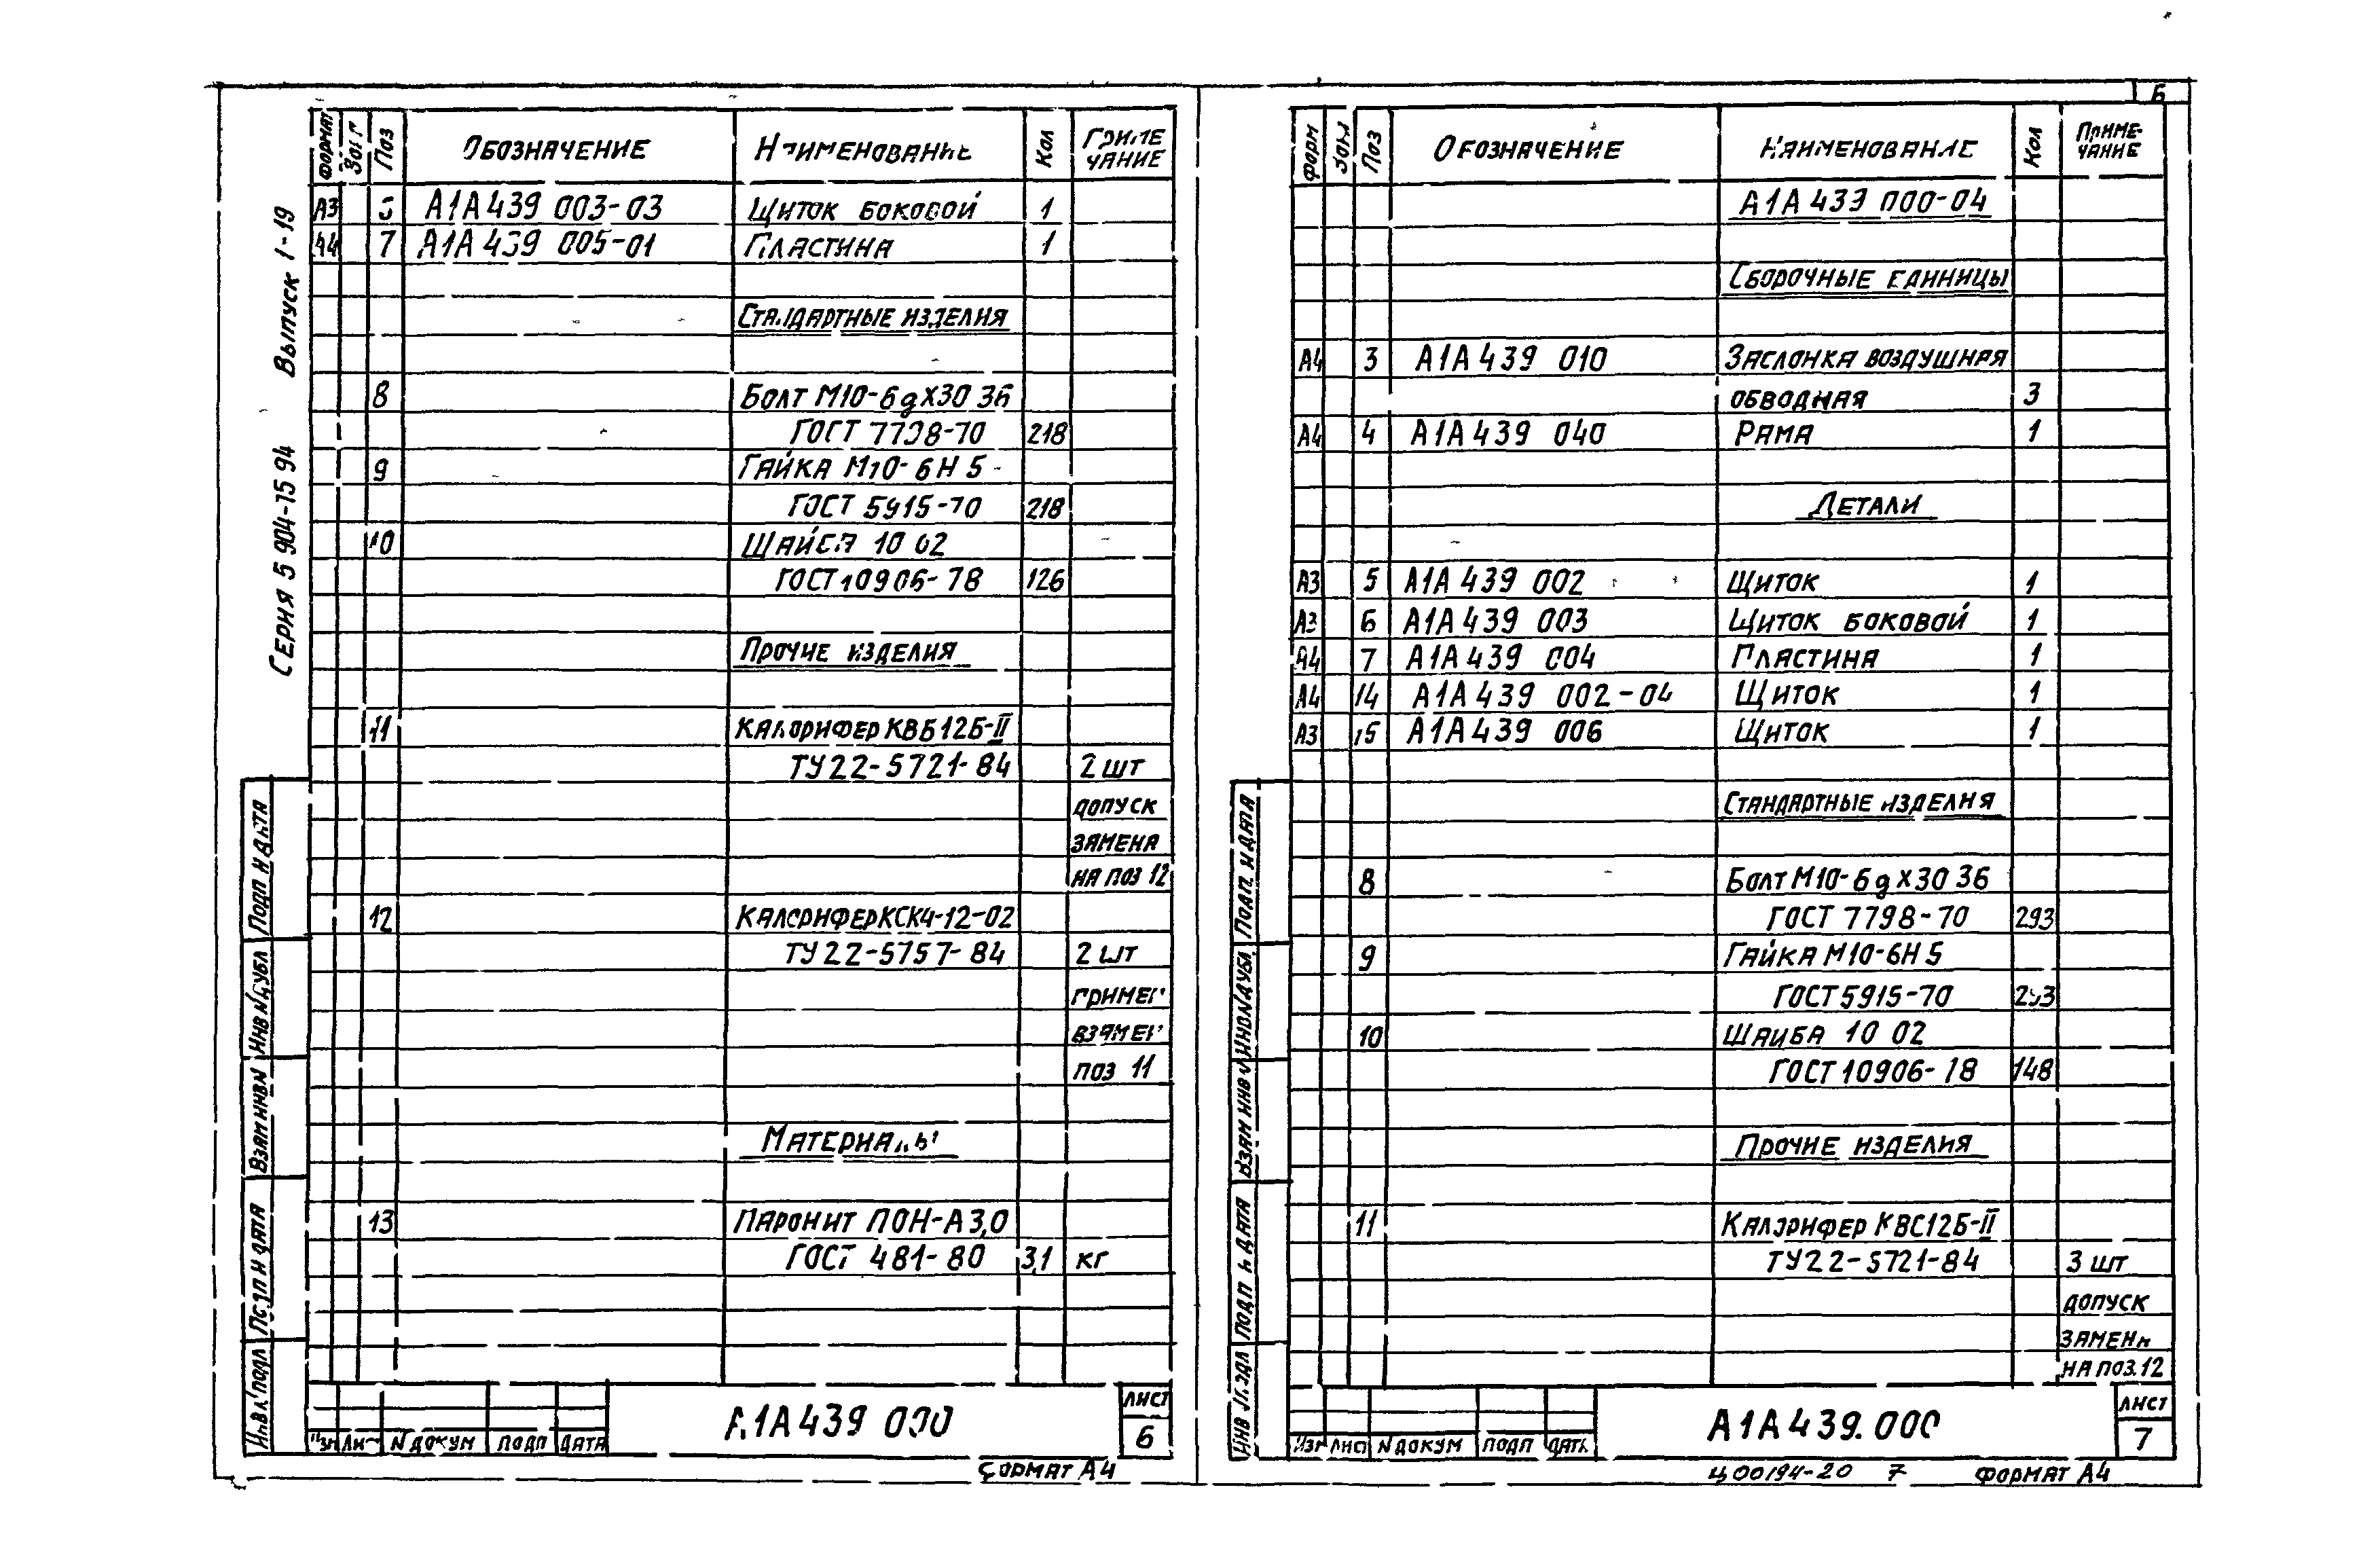 6
Серия 5 904-15 94 Выпуск 1-19
Формат Поз Обозначение Наименование Кол Примечание
А3 6 А1А 439 003-03 Щиток боковой 1
А4 7 А1А 439 005-01 Пластина 1
Стандартные изделия
8 Болт М10-6gХ30 36
ГОСТ 7798-70 218
9 Гайка М10-6Н 5
ГОСТ 5915-70 218
10 Шайба 10 02
ГОСТ 10906-78 126
Прочие изделия
11 Калорифер КВБ12Б-II
ТУ22-5721-84 2 шт
допуск
замена
на поз 12
12 Калорифер КСК4-12-02
ТУ22-5757-84 2 шт
примен
взамен
поз 11
Материалы
13 Паронит ПОН-А3,0
ГОСТ 481-80 3,1 кг
Подп и дата
Инв №дубл
Взам инв№
Подп и дата
Инв №подл
Изм Лист № докум Подп Дата
А1А439 000
Лист
6
Формат А4
Форм Зона Поз Обозначение Наименование Кол Примечание
А1А 439 000-04
Сборочные единицы
А4 3 А1А 439 010 Заслонка воздушная
обводная 3
А4 4 А1А 439 040 Рама 1
Детали
А3 5 А1А 439 002 Щиток 1
А3 6 А1А 439 003 Щиток боковой 1
А4 7 А1А 439 004 Пластина 1
А4 14 А1А 439 002-04 Щиток 1
А3 15 А1А 439 006 Щиток 1
Стандартные изделия
8 Болт М10-6gХ30 36
ГОСТ 7798-70 293
9 Гайка М10-6Н 5
ГОСТ 5915-70 293
10 Шайба 10 02
ГОСТ 10906-78 148
Прочие изделия
11 Калорифер КВС12Б-II
ТУ22-5721-84 3 шт
допуск
замена
на поз.12
Подп. и дата
Инв№дубл
Взам инв №
Подп и дата
Инв № подл
Изм Лист № докум Подп Дата
А1А439.000
Лист
7
Ц00194-20 7 Формат А4